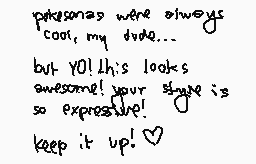 pokesonas were always
cool, my dude...
but YO! this looks
awesome! your style is
so expressive!
keep it up! ♡